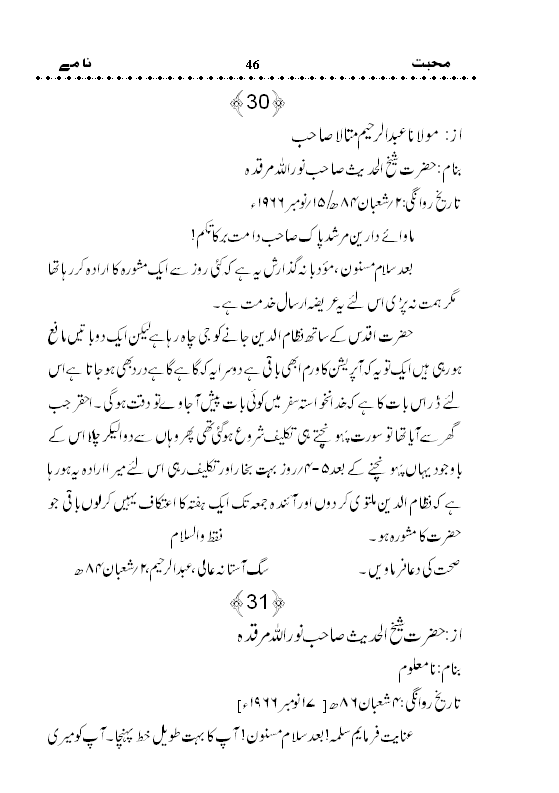 محبت 46 نامے
﴿30﴾
از: مولانا عبدالرحیم متالا صاحب
بنام: حضرت شیخ الحدیث صاحب نور اللہ مرقدہ
تاریخ روانگی: ۲؍شعبان ۸۴ھ/۱۵؍نومبر ۱۹۶۶ء
ماوائے دارین مرشد پاک صاحب دامت برکاتکم!
بعد سلام مسنون، مؤدبانہ گذارش یہ ہے کہ کئی روز سے ایک مشورہ کا ارادہ کر رہا تھا
مگر ہمت نہ پڑی اس لئے یہ عریضہ ارسال خدمت ہے۔
حضرت اقدس کے ساتھ نظام الدین جانے کو جی چاہ رہا ہے لیکن ایک دو باتیں مانع
ہو رہی ہیں ایک تو یہ کہ آپریشن کا ورم ابھی باقی ہے دوسرا یہ کہ گاہے گاہے درد بھی ہو جاتا ہے اس
لئے ڈر اس بات کا ہے کہ خدانخواستہ سفر میں کوئی بات پیش آجاوے تو دقت ہوگی۔ احقر جب
گھر سے آیا تھا تو سورت پہونچتے ہی تکلیف شروع ہوگئی تھی پھر وہاں سے دوا لیکر چلا اس کے
باوجود یہاں پہونچنے کے بعد ۵-۴؍روز بہت بخار اور تکلیف رہی اس لئے میرا ارادہ یہ ہو رہا
ہے کہ نظام الدین ملتوی کر دوں اور آئندہ جمعہ تک ایک ہفتہ کا اعتکاف یہیں کرلوں باقی جو
حضرت کا مشورہ ہو۔ فقط والسلام
صحت کی دعا فرماویں۔ سگ آستانہ عالی، عبدالرحیم، ۲؍شعبان ۸۴ھ
﴿31﴾
از: حضرت شیخ الحدیث صاحب نور اللہ مرقدہ
بنام: نامعلوم
تاریخ روانگی: ۴ شعبان ۸۶ھ [۱۷ نومبر ۱۹۶۶ء]
عنایت فرمایم سلمہ! بعد سلام مسنون! آپ کا بہت طویل خط پہنچا۔ آپ کو میری